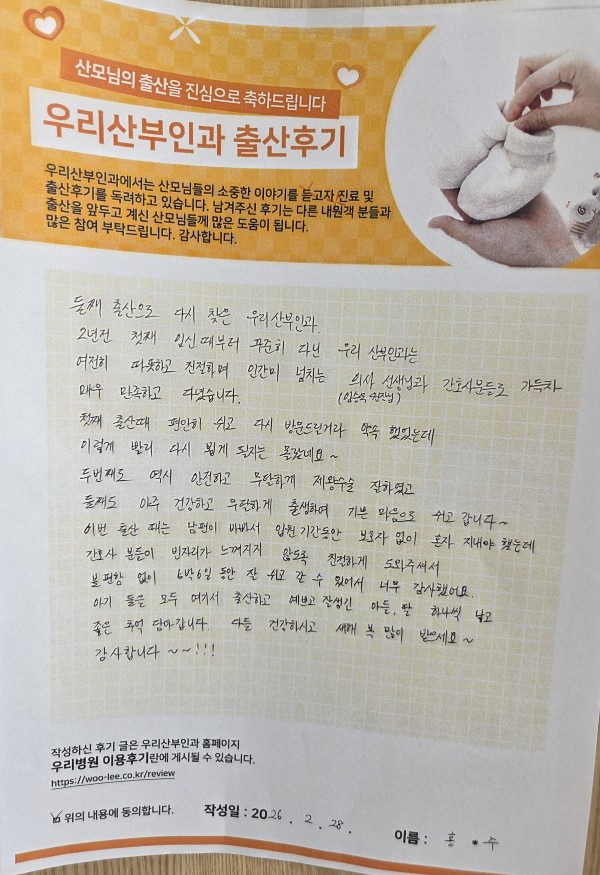 산모님의 출산을 진심으로 축하드립니다
우리산부인과 출산후기
우리산부인과에서는 산모님들의 소중한 이야기를 듣고자 진료 및
출산후기를 독려하고 있습니다. 남겨주신 후기는 다른 내원객 분들과
출산을 앞두고 계신 산모님들께 많은 도움이 됩니다.
많은 참여 부탁드립니다. 감사합니다.
둘째 출산으로 다시 찾은 우리산부인과.
2년전 첫째 임신때부터 꾸준히 다닌 우리 산부인과는
여전히 따뜻하고 친절하며 인간미 넘치는 의사 선생님과 간호사분들로 가득차
매우 만족하고 다녔습니다. 원장님)
첫째 출산때 편안히 쉬고 다시 방문드린거라 약속 했었는데
이렇게 빨리 다시 뵙게 될지는 몰랐네요~
두번째도 역시 안전하고 무탈하게 제왕수술 잘하였고
둘째도 아주 건강하고 무탈하게 출생하여 기쁜 마음으로 쉬고 갑니다~
이번 출산 때는 남편이 바빠서 입원기간동안 보호자 없이 혼자 지내야 했는데
간호사 분들이 빈자리가 느껴지지 않도록 친절하게 도와주셔서
불편함 없이 6박6일 동안 잘 쉬고 갈 수 있어서 너무 감사했어요.
아기 둘은 모두 여기서 출산하고 예쁘고 잘생긴 아들, 딸 하나씩 낳고
좋은 추억 담아갑니다. 다들 건강하시고 새해 복 많이 받으세요~
감사합니다~~!!!
작성하신 후기 글은 우리산부인과 홈페이지
우리병원 이용후기란에 게시될 수 있습니다.
https://woo-lee.co.kr/review
위의 내용에 동의합니다. 작성일 : 2026. 2. 28.
이름 : 홍 * 수